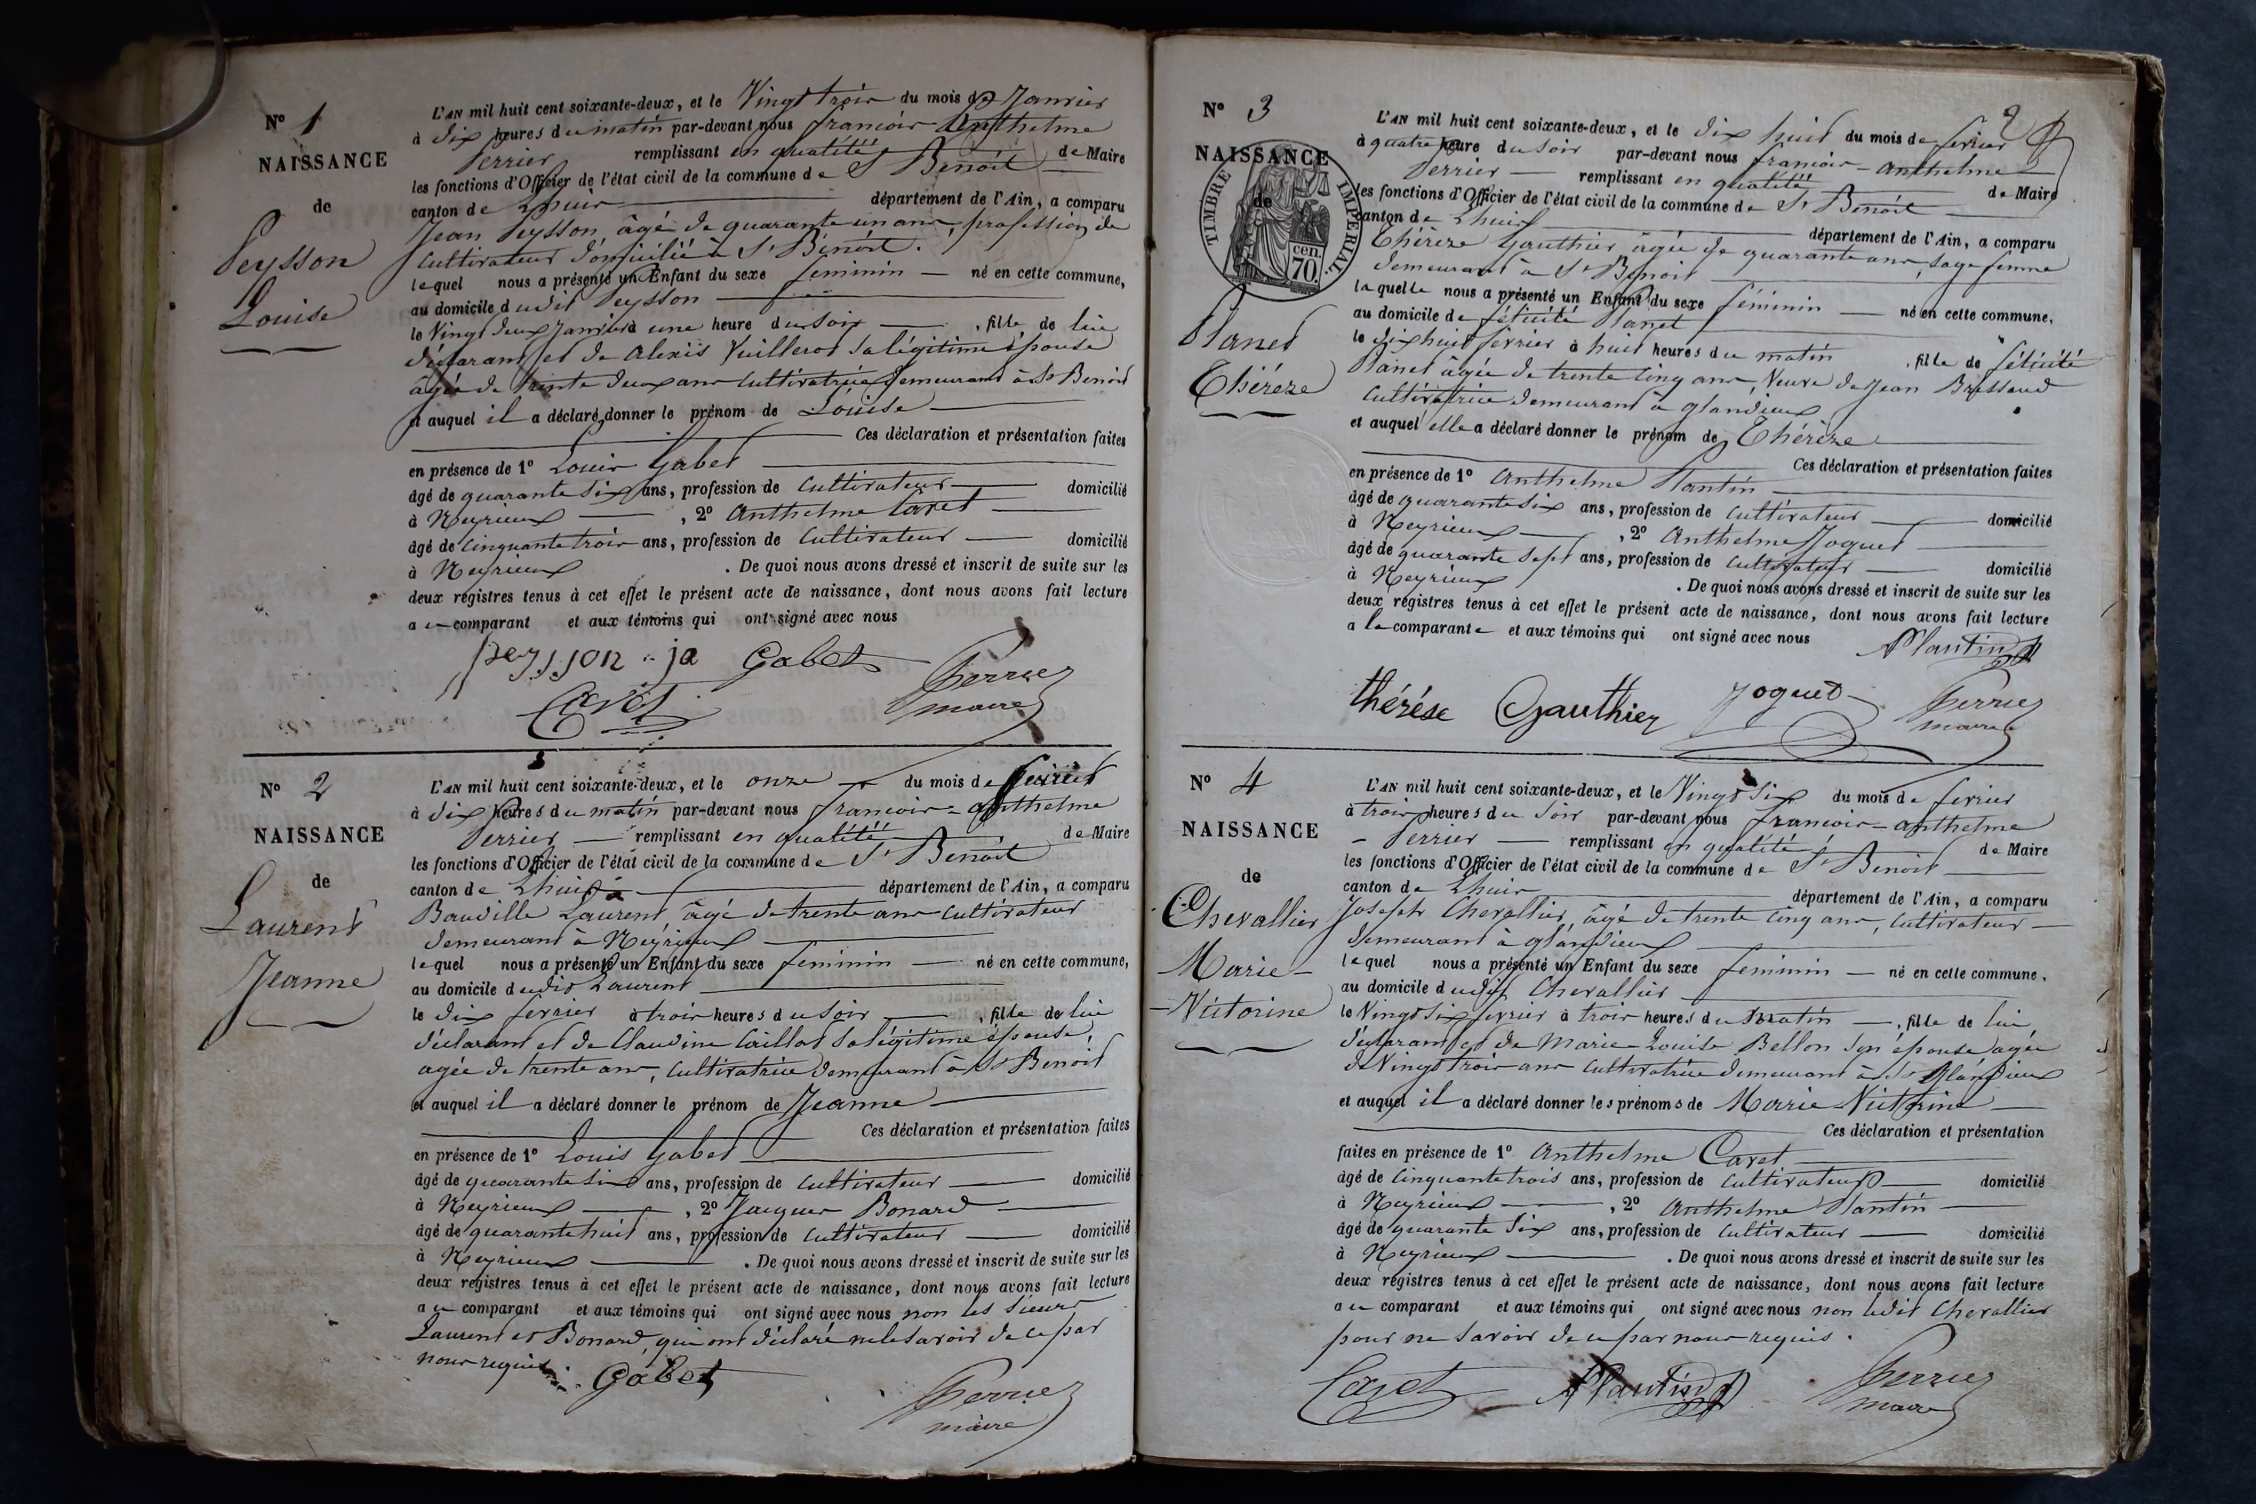 N° 1
NAISSANCE
de
Peysson
Louise
L'AN mil huit cent soixante-deux, et le Vingt trois du mois de Janvier
à dix heures du matin par-devant nous francois Anthelme
Perrier remplissant en qualitéé de Maire
les fonctions d'Officier de l'état civil de la commune de St Benoît
canton de Lhuis département de l'Ain, a comparu
Jean Peysson, âgé de quarante un ans, profession de
cultivateur domicilié à St Benoit.
lequel nous a présenté un Enfant du sexe féminin né en cette commune,
au domicile dudit Peysson
le Vingt deux Janvier à une heure du soir, fille de lui
déclarant et de Alexis Vuillerod sa légitime épouse
âgée de trente deux ans cultivatrice demeurant à St Benoit
et auquel il a déclaré donner le prénom de Louise
Ces déclaration et présentation faites
en présence de 1° Louis Gabet
âgé de quarante six ans, profession de cultivateur domicilié
à Neyrieux, 2° Anthelme Cavet
âgé de cinquante trois ans, profession de Cultivateur domicilié
à Neyrieux. De quoi nous avons dressé et inscrit de suite sur les
deux registres tenus à cet effet le présent acte de naissance, dont nous avons fait lecture
au comparant et aux témoins qui ont signé avec nous
peysson ja Gabet Perrier
Cavet maire
N° 2
NAISSANCE
de
Laurent
Jeanne
L'AN mil huit cent soixante-deux, et le onze du mois de fevrier
à dix heures du matin par-devant nous francois = anthelme
Perrier remplissant en qualitéé de Maire
les fonctions d'Officier de l'état civil de la commune de St Benoit
canton de Lhuis département de l'Ain, a comparu
Baudille Laurent, âgé de trente ans cultivateur
demeurant à Neyrieux
lequel nous a présenté un Enfant du sexe feminin né en cette commune,
au domicile dudit Laurent
le dix fevrier à trois heures du soir, fille de lui
déclarant et de Claudine Caillot sa légitime épouse,
agée de trente ans, cultivatrice demeurant à St Benoit
et auquel il a déclaré donner le prénom de Jeanne
Ces déclaration et présentation faites
en présence de 1° Louis Gabet
âgé de quarante six ans, profession de cultivateur domicilié
à Neyrieux, 2° Jacques Bonard
âgé de quarante huit ans, profession de cultivateur domicilié
à Neyrieux. De quoi nous avons dressé et inscrit de suite sur les
deux registres tenus à cet effet le présent acte de naissance, dont nous avons fait lecture
au comparant et aux témoins qui ont signé avec nous non les sieurs
Laurent et Bonard, qui ont déclaré ne le savoir de ce par
nous requis.
Gabet Perrier
maire
2
N° 3
NAISSANCE
de
TIMBRE IMPÉRIAL
cen. 70
Planet
Théreze
L'AN mil huit cent soixante-deux, et le dix huit du mois de fevrier
à quatre heure du soir par-devant nous francois - anthelme
Perrier remplissant en qualitéé de Maire
les fonctions d'Officier de l'état civil de la commune de St Benoit
canton de Lhuis département de l'Ain, a comparu
Théreze Gauthier âgée de quarante ans, sage femme
demeurant à St Benoit
laquelle nous a présenté un Enfant du sexe féminin né en cette commune,
au domicile de félicité Planet
le dix huit fevrier à huit heures du matin, fille de félicité
Planet âgée de trente cinq ans, Veuve de Jean Brissaud
cultivatrice demeurant à glandieux
et auquel elle a déclaré donner le prénom de Théréze
Ces déclaration et présentation faites
en présence de 1° Anthelme Plantin
âgé de quarante six ans, profession de cultivateur domicilié
à Neyrieux, 2° Anthelme Joguet
âgé de quarante sept ans, profession de cultivateur domicilié
à Neyrieux. De quoi nous avons dressé et inscrit de suite sur les
deux registres tenus à cet effet le présent acte de naissance, dont nous avons fait lecture
a la comparante et aux témoins qui ont signé avec nous APlantin
thérése Gauthier Joguet Perrier
maire
N° 4
NAISSANCE
de
Chevallier
Marie -
- Victorine
L'AN mil huit cent soixante-deux, et le Vingt Six du mois de fevrier
à trois heures du soir par-devant nous francois - anthelme
- Perrier remplissant en qualitéé de Maire
les fonctions d'Officier de l'état civil de la commune de St Benoit
canton de Lhuis département de l'Ain, a comparu
Joseph Chevallier, âgé de trente cinq ans, cultivateur
demeurant à glandieux
lequel nous a présenté un Enfant du sexe feminin né en cette commune,
au domicile dudit Chevallier
le Vingt Six fevrier à trois heures du matin, fille de lui,
déclarant et de Marie Louise Bellon son épouse agée
de Vingt trois ans cultivatrice demeurant à Glandieux
et auquel il a déclaré donner les prénoms de Marie Victorine
Ces déclaration et présentation
faites en présence de 1° Anthelme Cavet
âgé de cinquante trois ans, profession de cultivateur domicilié
à Neyrieux, 2° Anthelme Plantin
âgé de quarante six ans, profession de cultivateur domicilié
à Neyrieux. De quoi nous avons dressé et inscrit de suite sur les
deux registres tenus à cet effet le présent acte de naissance, dont nous avons fait lecture
au comparant et aux témoins qui ont signé avec nous non ledit Chevallier
pour ne savoir de ce par nous requis.
Cavet APlantin Perrier
maire